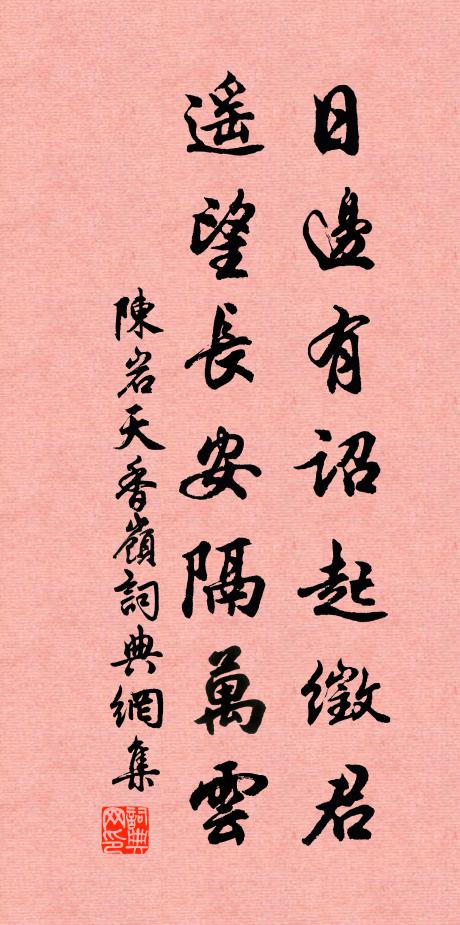 日邊有詔起徵君
遥望長安隔萬雲
陳岩天香嶺詞典網集
詞典网印